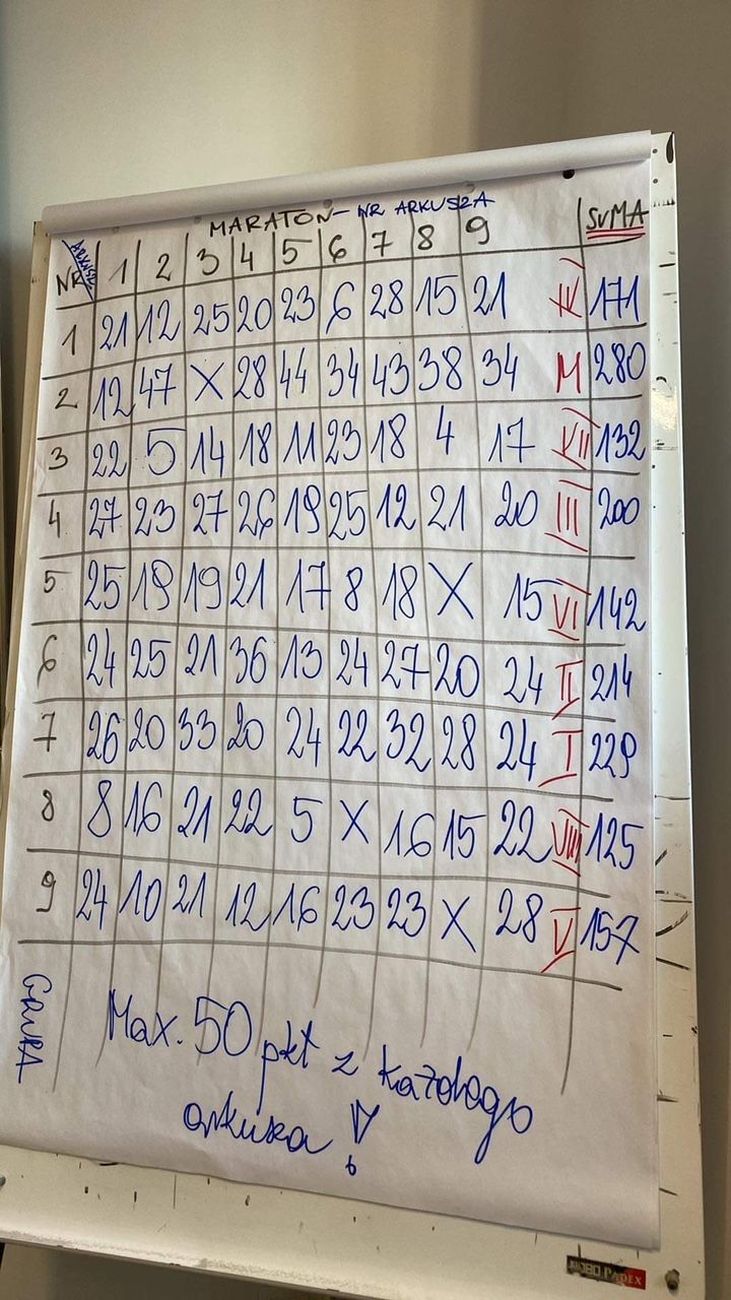 MARATON - NR ARKUSZA
NR ARKUSZ 1 2 3 4 5 6 7 8 9 SUMA
1 21 12 25 20 23 6 28 15 21 IV 171
2 12 47 X 28 44 34 43 38 34 M 280
3 22 5 14 18 11 23 18 4 17 VII 132
4 27 23 27 26 19 25 12 21 20 III 200
5 25 19 19 21 17 8 18 X 15 VI 142
6 24 25 21 36 13 24 27 20 24 II 214
7 26 20 33 20 24 22 32 28 24 I 229
8 8 16 21 22 5 X 16 15 22 VIII 125
9 24 10 21 12 16 23 23 X 28 V 157
GRUPA
Max. 50 pkt z każdego
arkusza!